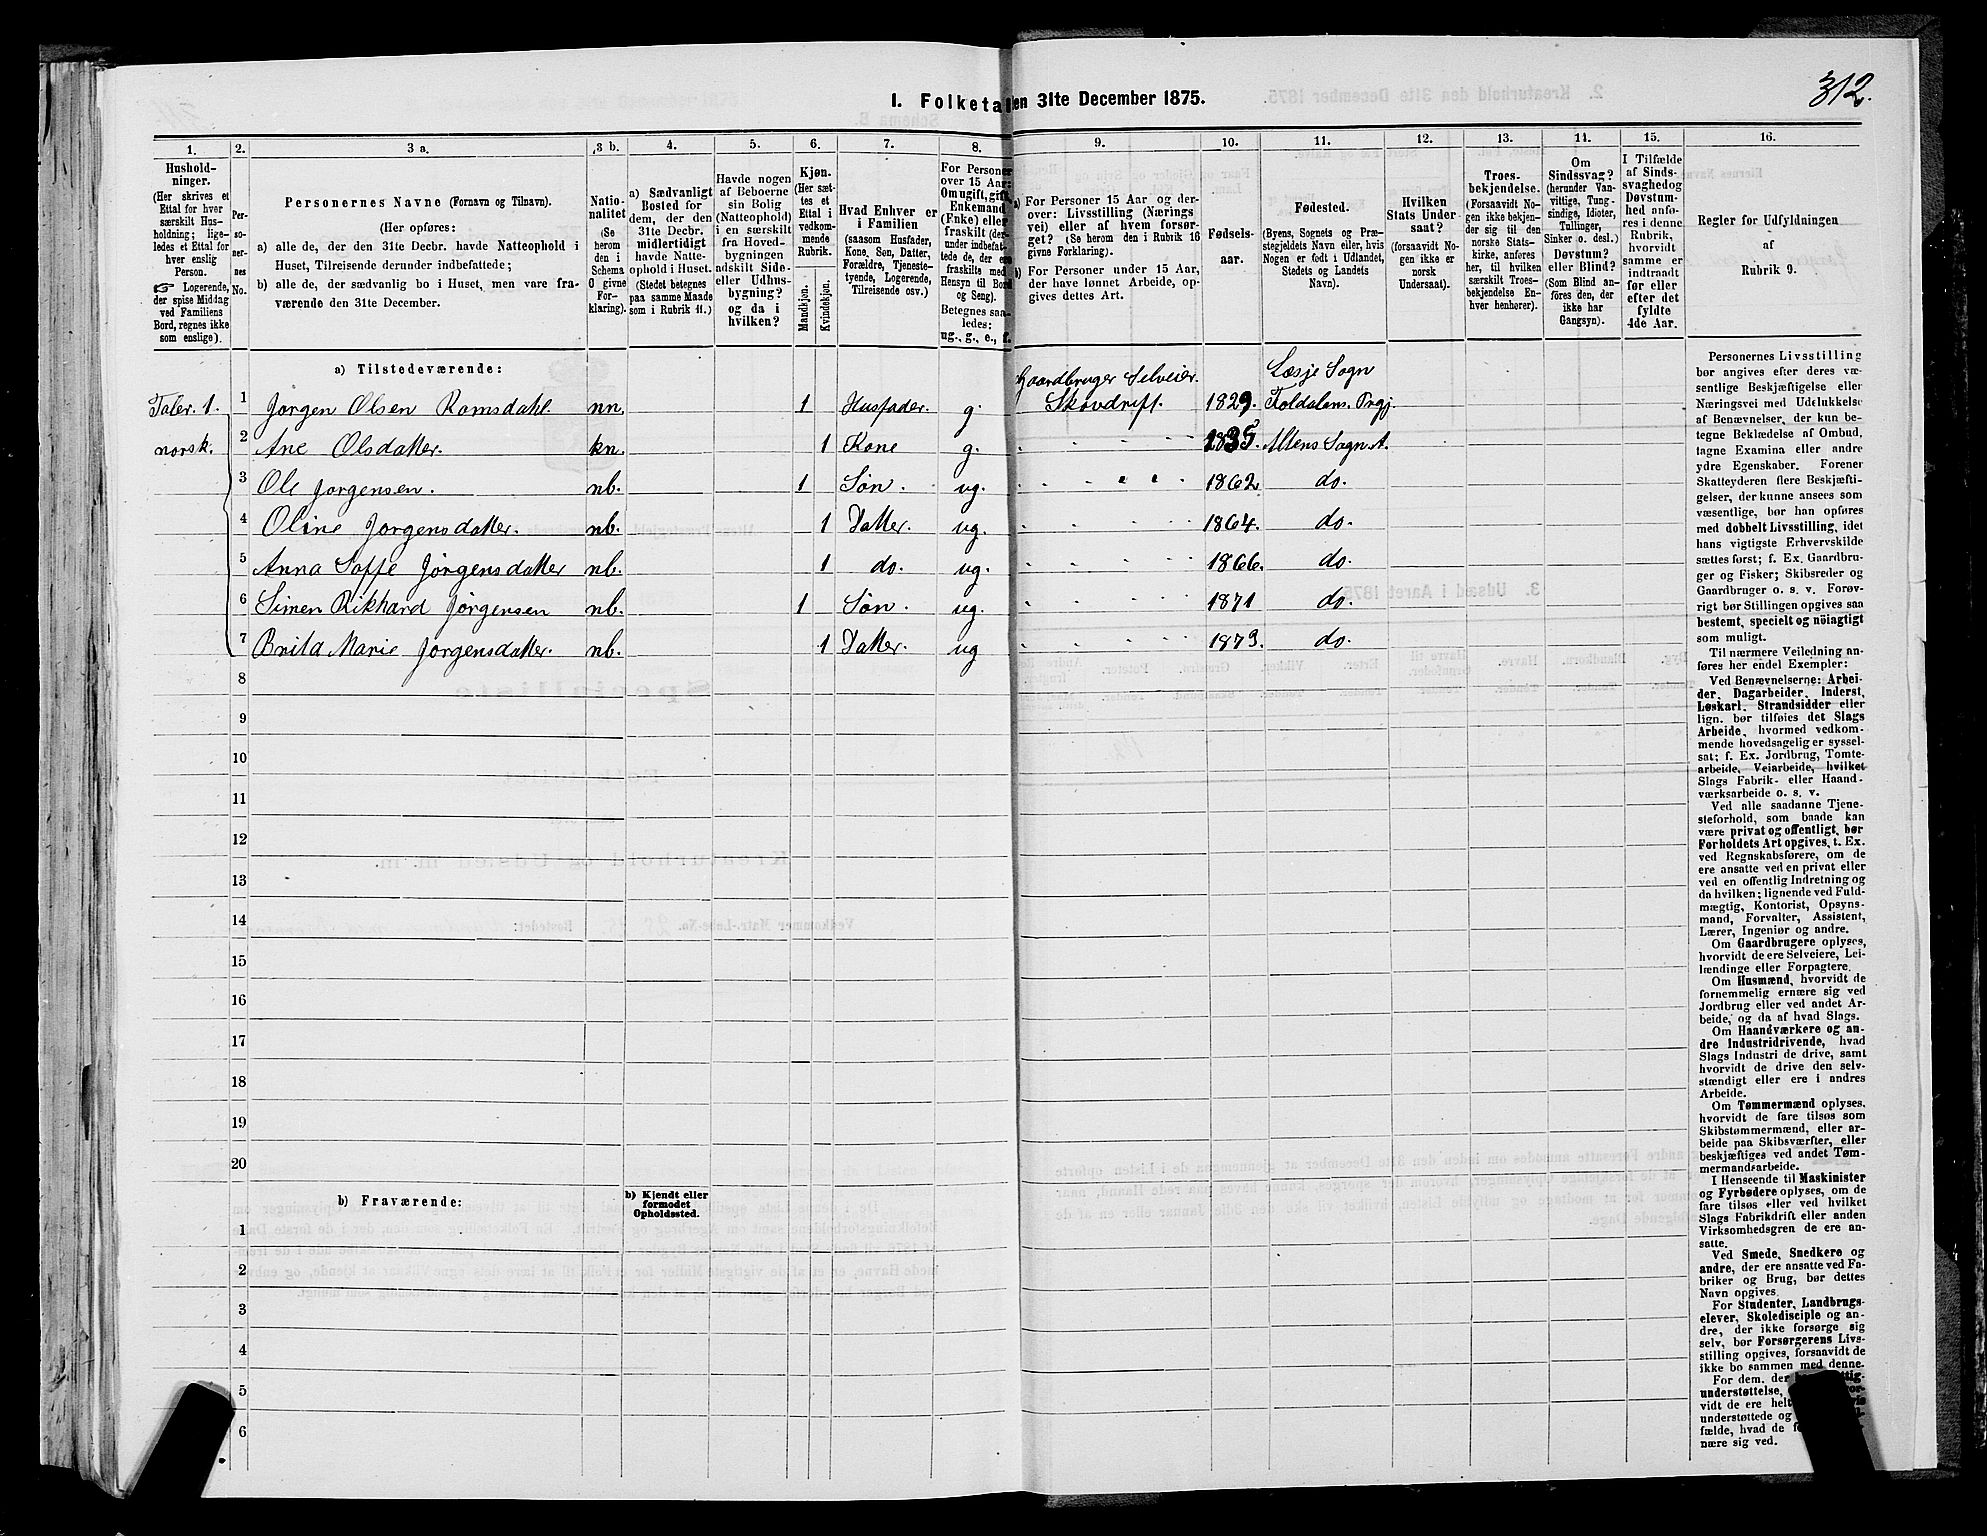 312.
I. Folketal den 31te December 1875.
1. 2. 3 a. 3 b. 4. 5. 6. 7. 8. 9. 10. 11. 12. 13. 14. 15. 16.
Hushold-
ninger.
(Her skrives et
Ettal for hver
særskilt Hus-
holdning; lige-
ledes et Ettal for
hver enslig
Person.
☞ Logerende,
der spise Middag
ved Familiens
Bord, regnes ikke
som enslige).
Per-
so-
ner-
nes
No.
Personernes Navne (Fornavn og Tilnavn).
(Her opføres:
a) alle de, der den 31te Decbr. havde Natteophold i
Huset, Tilreisende derunder indbefattede;
b) alle de, der sædvanlig bo i Huset, men vare fra-
værende den 31te December.
Natio-
nalitet
(Se
herom
den i
Schema
0 givne
For-
klaring).
a) Sædvanligt
Bosted for
dem, der den
31te Decbr.
midlertidigt
havde Natte-
ophold i Huset.
(Stedet betegnes
paa samme Maade
som i Rubrik 11.)
Havde nogen
af Beboerne
sin Bolig
(Natteophold)
i en særskilt
fra Hoved-
bygningen
adskilt Side-
eller Udhus-
bygning?
og da i
hvilken?
Kjøn.
(Her sæt-
tes et
Ettal i
vedkom-
mende
Rubrik.
Mandkjøn.
Kvindekjøn.
Hvad Enhver er
i Familien
(saasom Husfader,
Kone, Søn, Datter,
Forældre, Tjeneste-
tyende, Logerende,
Tilreisende osv.)
For Personer
over 15 Aar:
Om ugift, gift,
Enkemand
(Enke) eller
fraskilt (der-
under indbefat-
tede de, der ere
fraskilte med
Hensyn til Bord
og Seng).
Betegnes saa-
ledes:
ug., g., e., f.
a) For Personer 15 Aar og der-
over: Livsstilling (Nærings
vei) eller af hvem forsør-
get? (Se herom den i Rubrik 16
givne Forklaring).
b) For Personer under 15 Aar,
der have lønnet Arbeide, op-
gives dettes Art.
Fødsels-
aar.
Fødested.
(Byens, Sognets og Præ-
stegjeldets Navn eller, hvis
Nogen er født i Udlandet,
Stedets og Landets
Navn).
Hvilken
Stats Under-
saat?
(forsaavidt No-
gen ikke er
norsk
Undersaat).
Troes-
bekjendelse.
(Forsaavidt No-
gen ikke bekjen-
der sig til den
norske Stats-
kirke, anføres
her, til hvilken
særskilt Troes-
bekjendelse En-
hver henhører).
Om
Sindssvag?
(herunder Van-
vittige, Tung-
sindige, Idioter,
Tullinger,
Sinker o. desl.)
Døvstum?
eller Blind?
(Som Blind an-
føres den, der
ikke har
Gangsyn).
I Tilfælde
af Sinds-
svaghed og
Døvstum-
hed anfø-
res i denne
Rubrik,
hvorvidt
samme er
indtraadt
før eller
efter det
fyldte
4de Aar.
Regler for Udfyldningen
af
Rubrik 9.
a) Tilstedeværende:
Taler. 1. 1 Jørgen Olsen Romsdahl. nn. 1 Husfader. g. Gaardbruger Selveier. Skovdrift. 1829. Læsje Sogn Foldalens Prgj.
norsk. 2 Ane Olsdatter. kn. 1 Kone g. 1835 Altens Sogn. A.
3 Ole Jørgensen. nb. 1 Søn. ug. 1862 do.
4 Oline Jørgensdatter. nb. 1 Datter. ug. 1864. do.
5 Anna Soffe Jørgensdatter nb. 1 do. ug. 1866. do.
6 Simen Rikhard Jørgensen nb. 1 Søn. ug. 1871 do.
7 Brita Marie Jørgensdatter. nb. 1 Datter. ug 1873. do.
8
9
10
11
12
13
14
15
16
17
18
19
20
b) Fraværende:
b) Kjendt eller
formodet
Opholdssted.
1
2
3
4
5
6
Personernes Livsstilling
bør angives efter deres væ-
sentlige Beskjæftigelse eller
Næringsvei med Udelukkelse
af Benævnelser, der kun be-
tegne Beklædelse af Ombud,
tagne Examina eller andre
ydre Egenskaber. Forener
Skatteyderen flere Beskjæfti-
gelser, der kunne ansees som
væsentlige, bør han opføres
med dobbelt Livsstilling, idet
hans vigtigste Erhvervskilde
sættes først; f. Ex. Gaardbru-
ger og Fisker; Skibsreder og
Gaardbruger o. s. v. Forøv-
rigt bør Stillingen opgives saa
bestemt, specielt og nöiagtigt
som muligt.
Til nærmere Veiledning an-
føres her endel Exempler:
Ved Benævnelserne: Arbei-
der, Dagarbeider, Inderst,
Løskarl, Strandsidder eller
lign. bør tilføies det Slags
Arbeide, hvormed vedkom-
mende hovedsagelig er syssel-
sat; f. Ex. Jordbrug, Tomte-
arbeide, Veiarbeide, hvilket
Slags Fabrik- eller Haand-
værksarbeide o. s. v.
Ved alle saadanne Tjene-
steforhold, som baade kan
være privat og offentligt, bør
Forholdets Art opgives, t. Ex.
ved Regnskabsførere, om de
ere ansatte ved en privat eller
ved en offentlig Indretning og
da hvilken; lignende ved Fuld-
mægtig, Kontorist, Opsyns-
mand, Forvalter, Assistent,
Lærer, Ingeniør og andre.
Om Gaardbrugere oplyses,
hvorvidt de ere Selveiere, Lei-
lændinge eller Forpagtere.
Om Husmænd, hvorvidt de
fornemmelig ernære sig ved
Jordbrug eller ved andet Ar-
beide, og da af hvad Slags.
Om Haandværkere og an-
dre Industridrivende, hvad
Slags Industri de drive, samt
hvorvidt de drive den selv-
stændigt eller ere i andres
Arbeide.
Om Tømmermænd oplyses,
hvorvidt de fare tilsøs som
Skibstømmermænd, eller ar-
beide paa Skibsværfter, eller
beskjæftiges ved andet Tøm-
mermandsarbeide.
I Henseende til Maskinister
og Fyrbødere oplyses, om de
fare tilsøs eller ved hvilket
Slags Fabrikdrift eller anden
Virksomhedsgren de ere an-
satte.
Ved Smede, Snedkere og
andre, der ere ansatte ved Fa-
briker og Brug, bør dettes
Navn opgives.
For Studenter, Landbrugs-
elever, Skoledisciple og an-
dre, der ikke forsørge sig
selv, bør Forsørgerens Livs-
stilling opgives, forsaavidt de
ikke bo sammen med denne.
For dem, der
understøttelse,
vidt de ere helt
understøttede og
fælde, hvad de
nære sig ved.